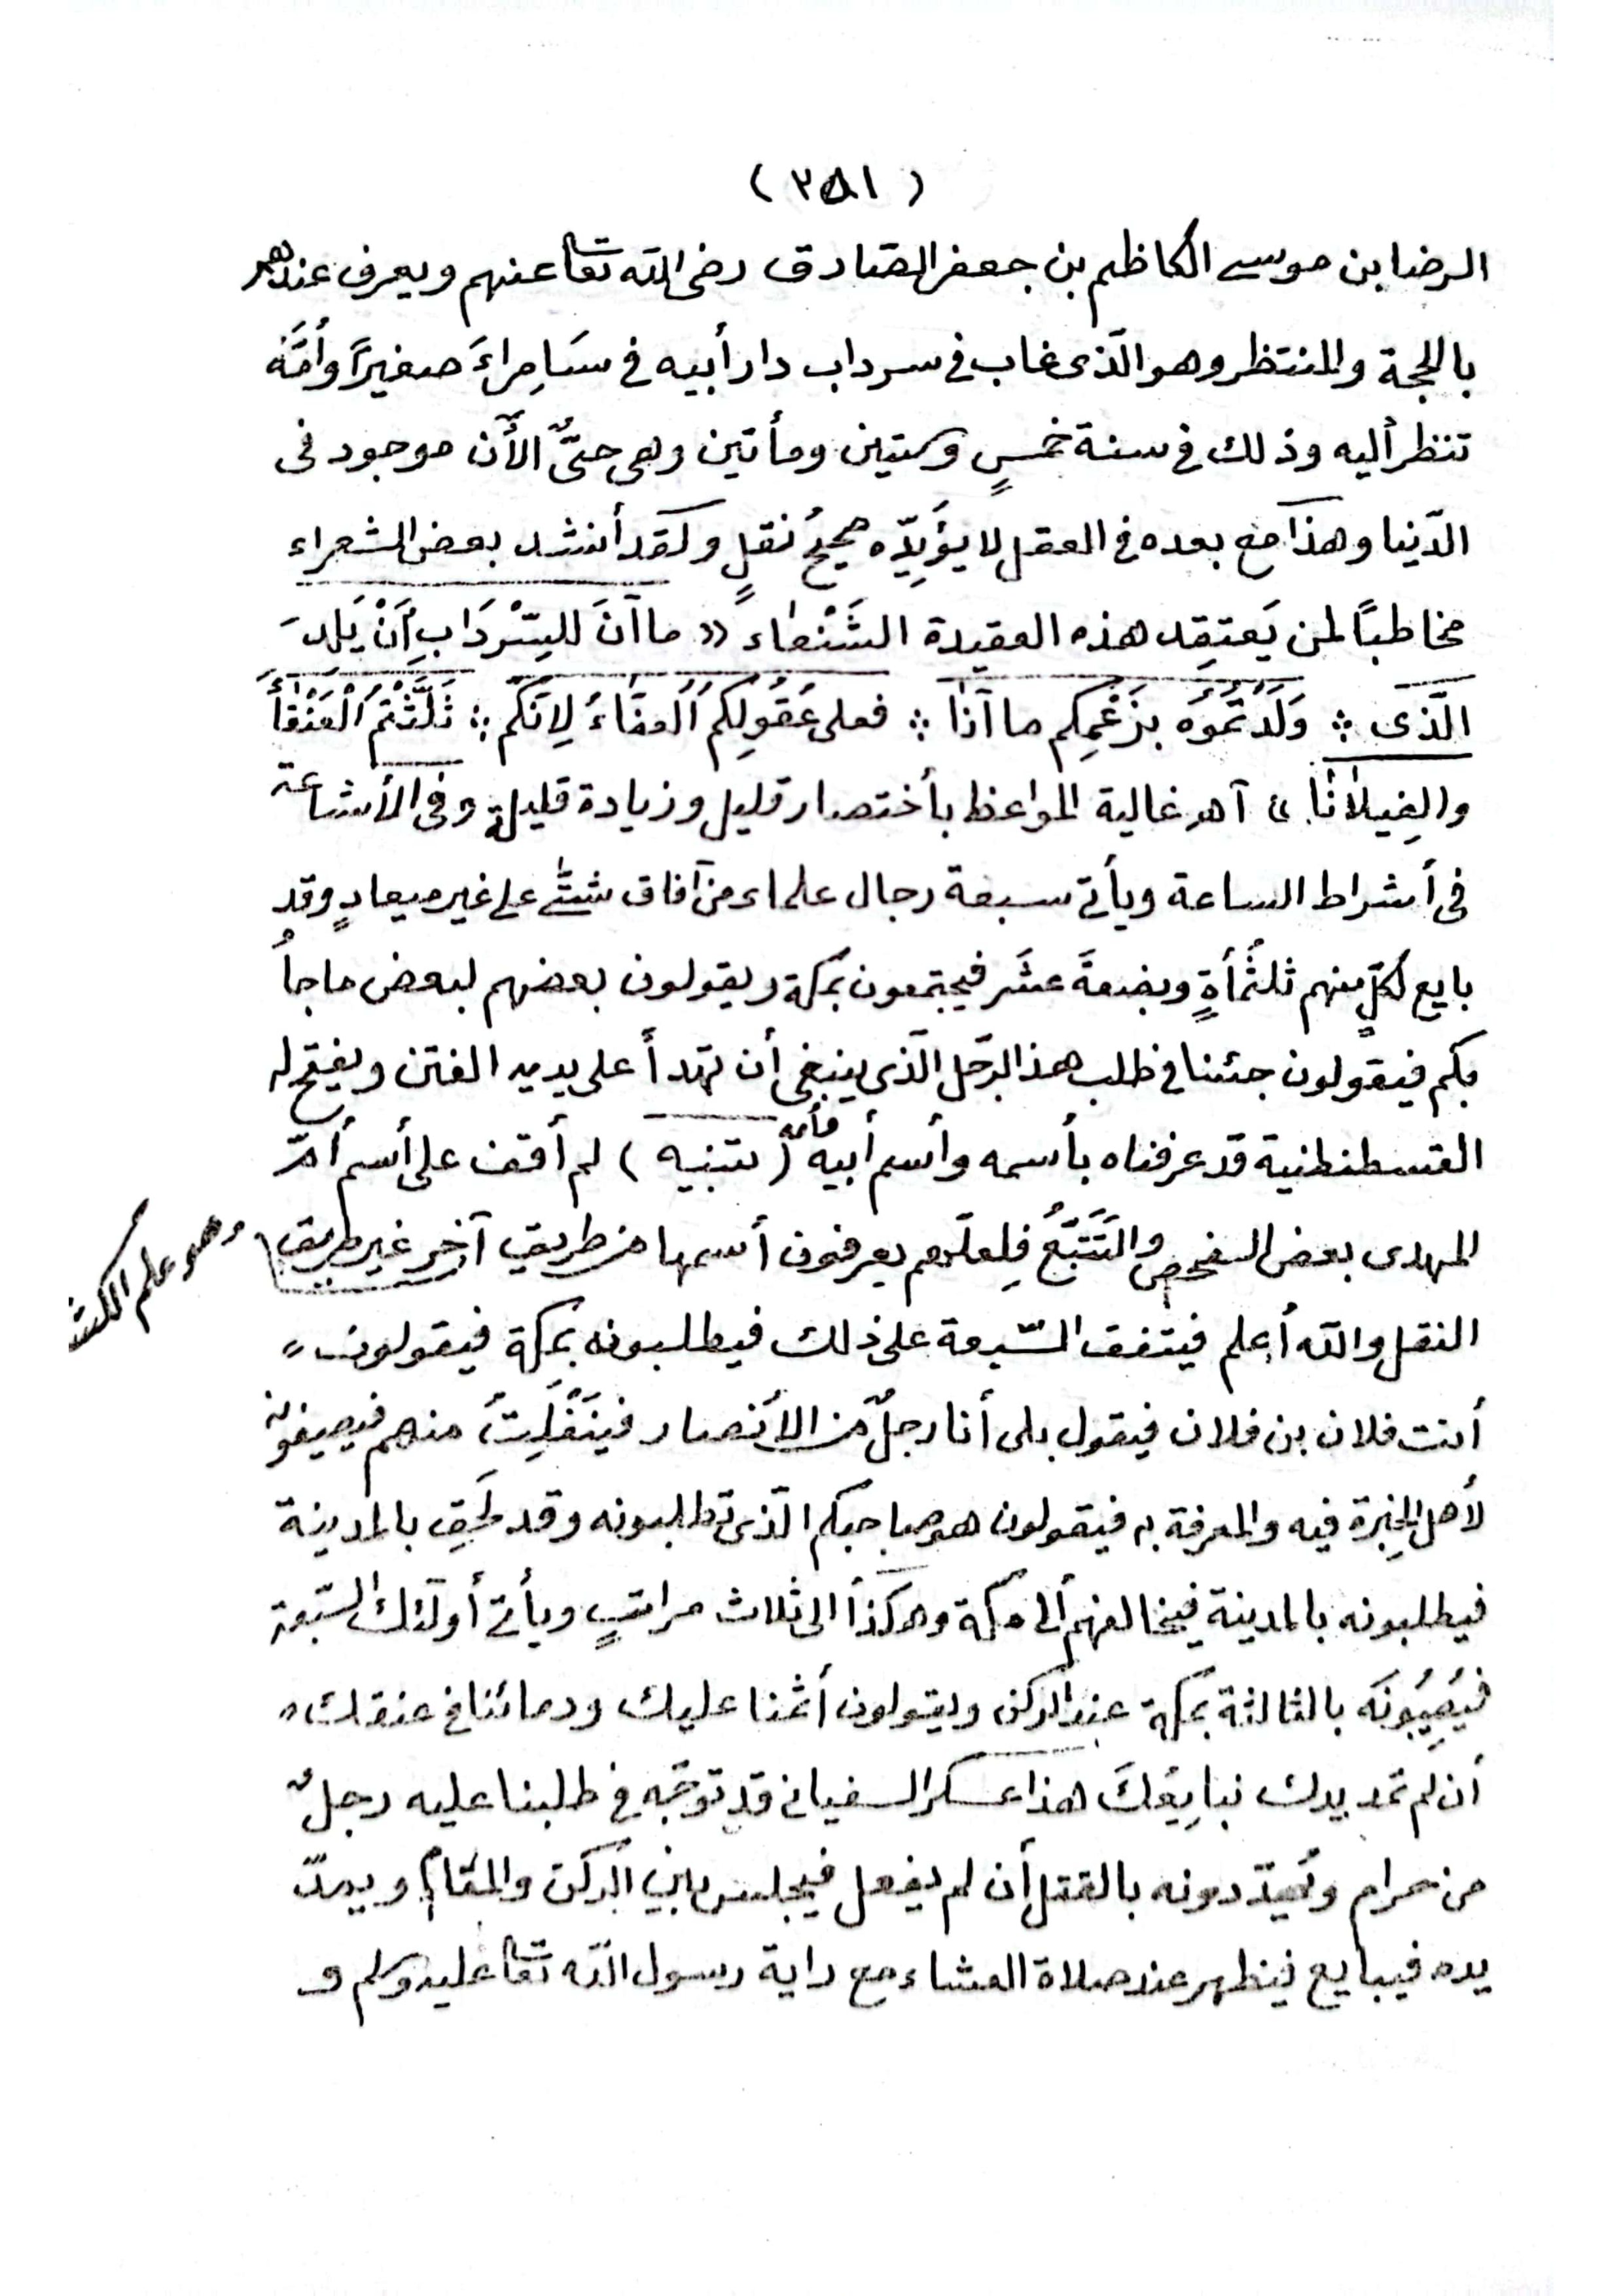 (٣٥١)
الرضا بن موسى الكاظم بن جعفر الصّادق رضى اللّه تعا عنهم ويعرف عندهم
بالحجة والمنتظر وهو الّذى غاب فى سرداب دار أبيه فى سَامِراءَ صغيرًا وأمَّه
تنظر أليه وذلك فى سنة خمسٍ وستين ومأتين وهى حتّى الأن موجود فى
الدّنيا وهذا مع بعده فى العقل لا يؤَيِّده صحيحُ نقلٍ ولقد أنشد بعض الشعراء
مخاطبًا لمن يَعتقِد هذه العقيدة الشَنْعاء «ما آنَ للسِّرْدَابِ أَنْ يَلِدَ
الَّذى ؞ وَلَدْتُمُوَه بِزَعْمِكم ما آنا ؞ فعلى عُقُولِكُم ألعفَاءُ لِانّكم ؞ ثَلَّثْتُمُ الْعَنْقَأَ
والغِيلانَا» آهـ غالية المواعظ بأختصار قليل وزيادة قليلة وفى الأشاعة
فى أشراط الساعة ويأتى سبعة رجال علماء من آفاق شتّى على غير ميعادٍ وقد
بايع لكلٍّ منهم ثلثُمأةٍ وبضعةَ عشَر فيجتمعون بمكة ويقولون بعضهم لبعض ما جأُ
بكم فيقولون جئنا فى طلب هذ الرّجل الّذى ينبغى أن تهدأ على يديه الفتن ويفتح له
القسطنطنية قد عرفناه بأسمه وأسم أبيه وأمه (تتبيه) لم أقف على أسم أمّ
المهدى بعض الفحص والتَتَبُّعُ فلِعلّهم يعرفون أسمها من طريق آخر غير طريق
وهو علم الكشف
النقل والله أعلم فيتفق السّبعة على ذلك فيطلبونه بمكة فيقولون"
أنت فلان بن فلان فيقول بلى أنا رجلٌ من الأنصار فينَفْلِتُ منهم فيصفونه
لأهل الخِبرة فيه والمعرفة به فيقولون هو صاحبكم الّذى تطلبونه وقد لَحِق بالمدينة
فيطلبونه بالمدينة فيخالفهم ألى مكة وهكذأ الى ثلاث مراتبٍ ويأتى أولئك السّبعة
فيُصِيبُونَه بالثالثة بمكة عند الركن ويقولون أثمنا عليك ودمائنا فى عنقك"
أن لم تمد يدك نبايِعُكَ هذا عسكر السفيانى قد توجّه فى طلبنا عليه رجلٌ
من حرام ويُهدّدونه بالقتل أن لم يفعل فيجلس بين الركن والمقام ويمدّ
يده فيبايع فيظهر عند صلاة العشاء مع راية رسول اللّه تعا عليه وسلم و